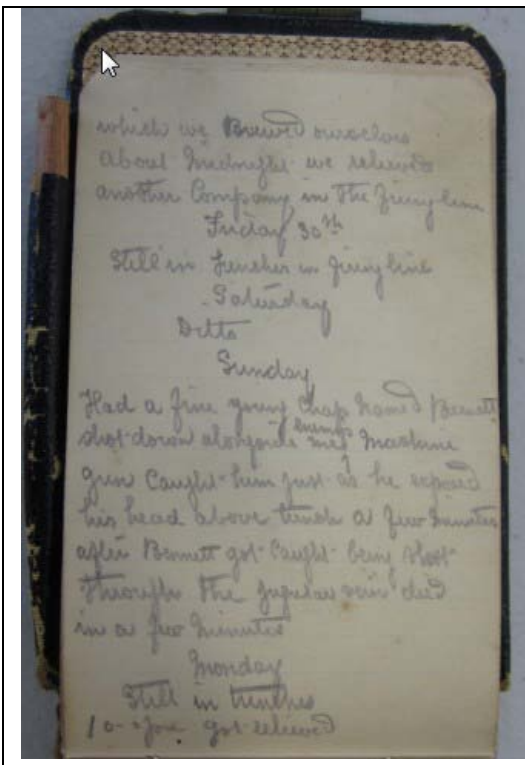 which we Brewed ourselves
about Midnight we relieved
another Company in the Firing line
Friday 30th
Still in Trenches in firing line
Saturday
Ditto
Sunday
Had a fine young Chap named Bennett
shot down alongside me enemys Machine
gun Caught him just as he exposed
his head above trench a few minutes
after Bennett got Caught being shot
through the jugular vein died
in a few minutes
Monday
Still in trenches
got relieved